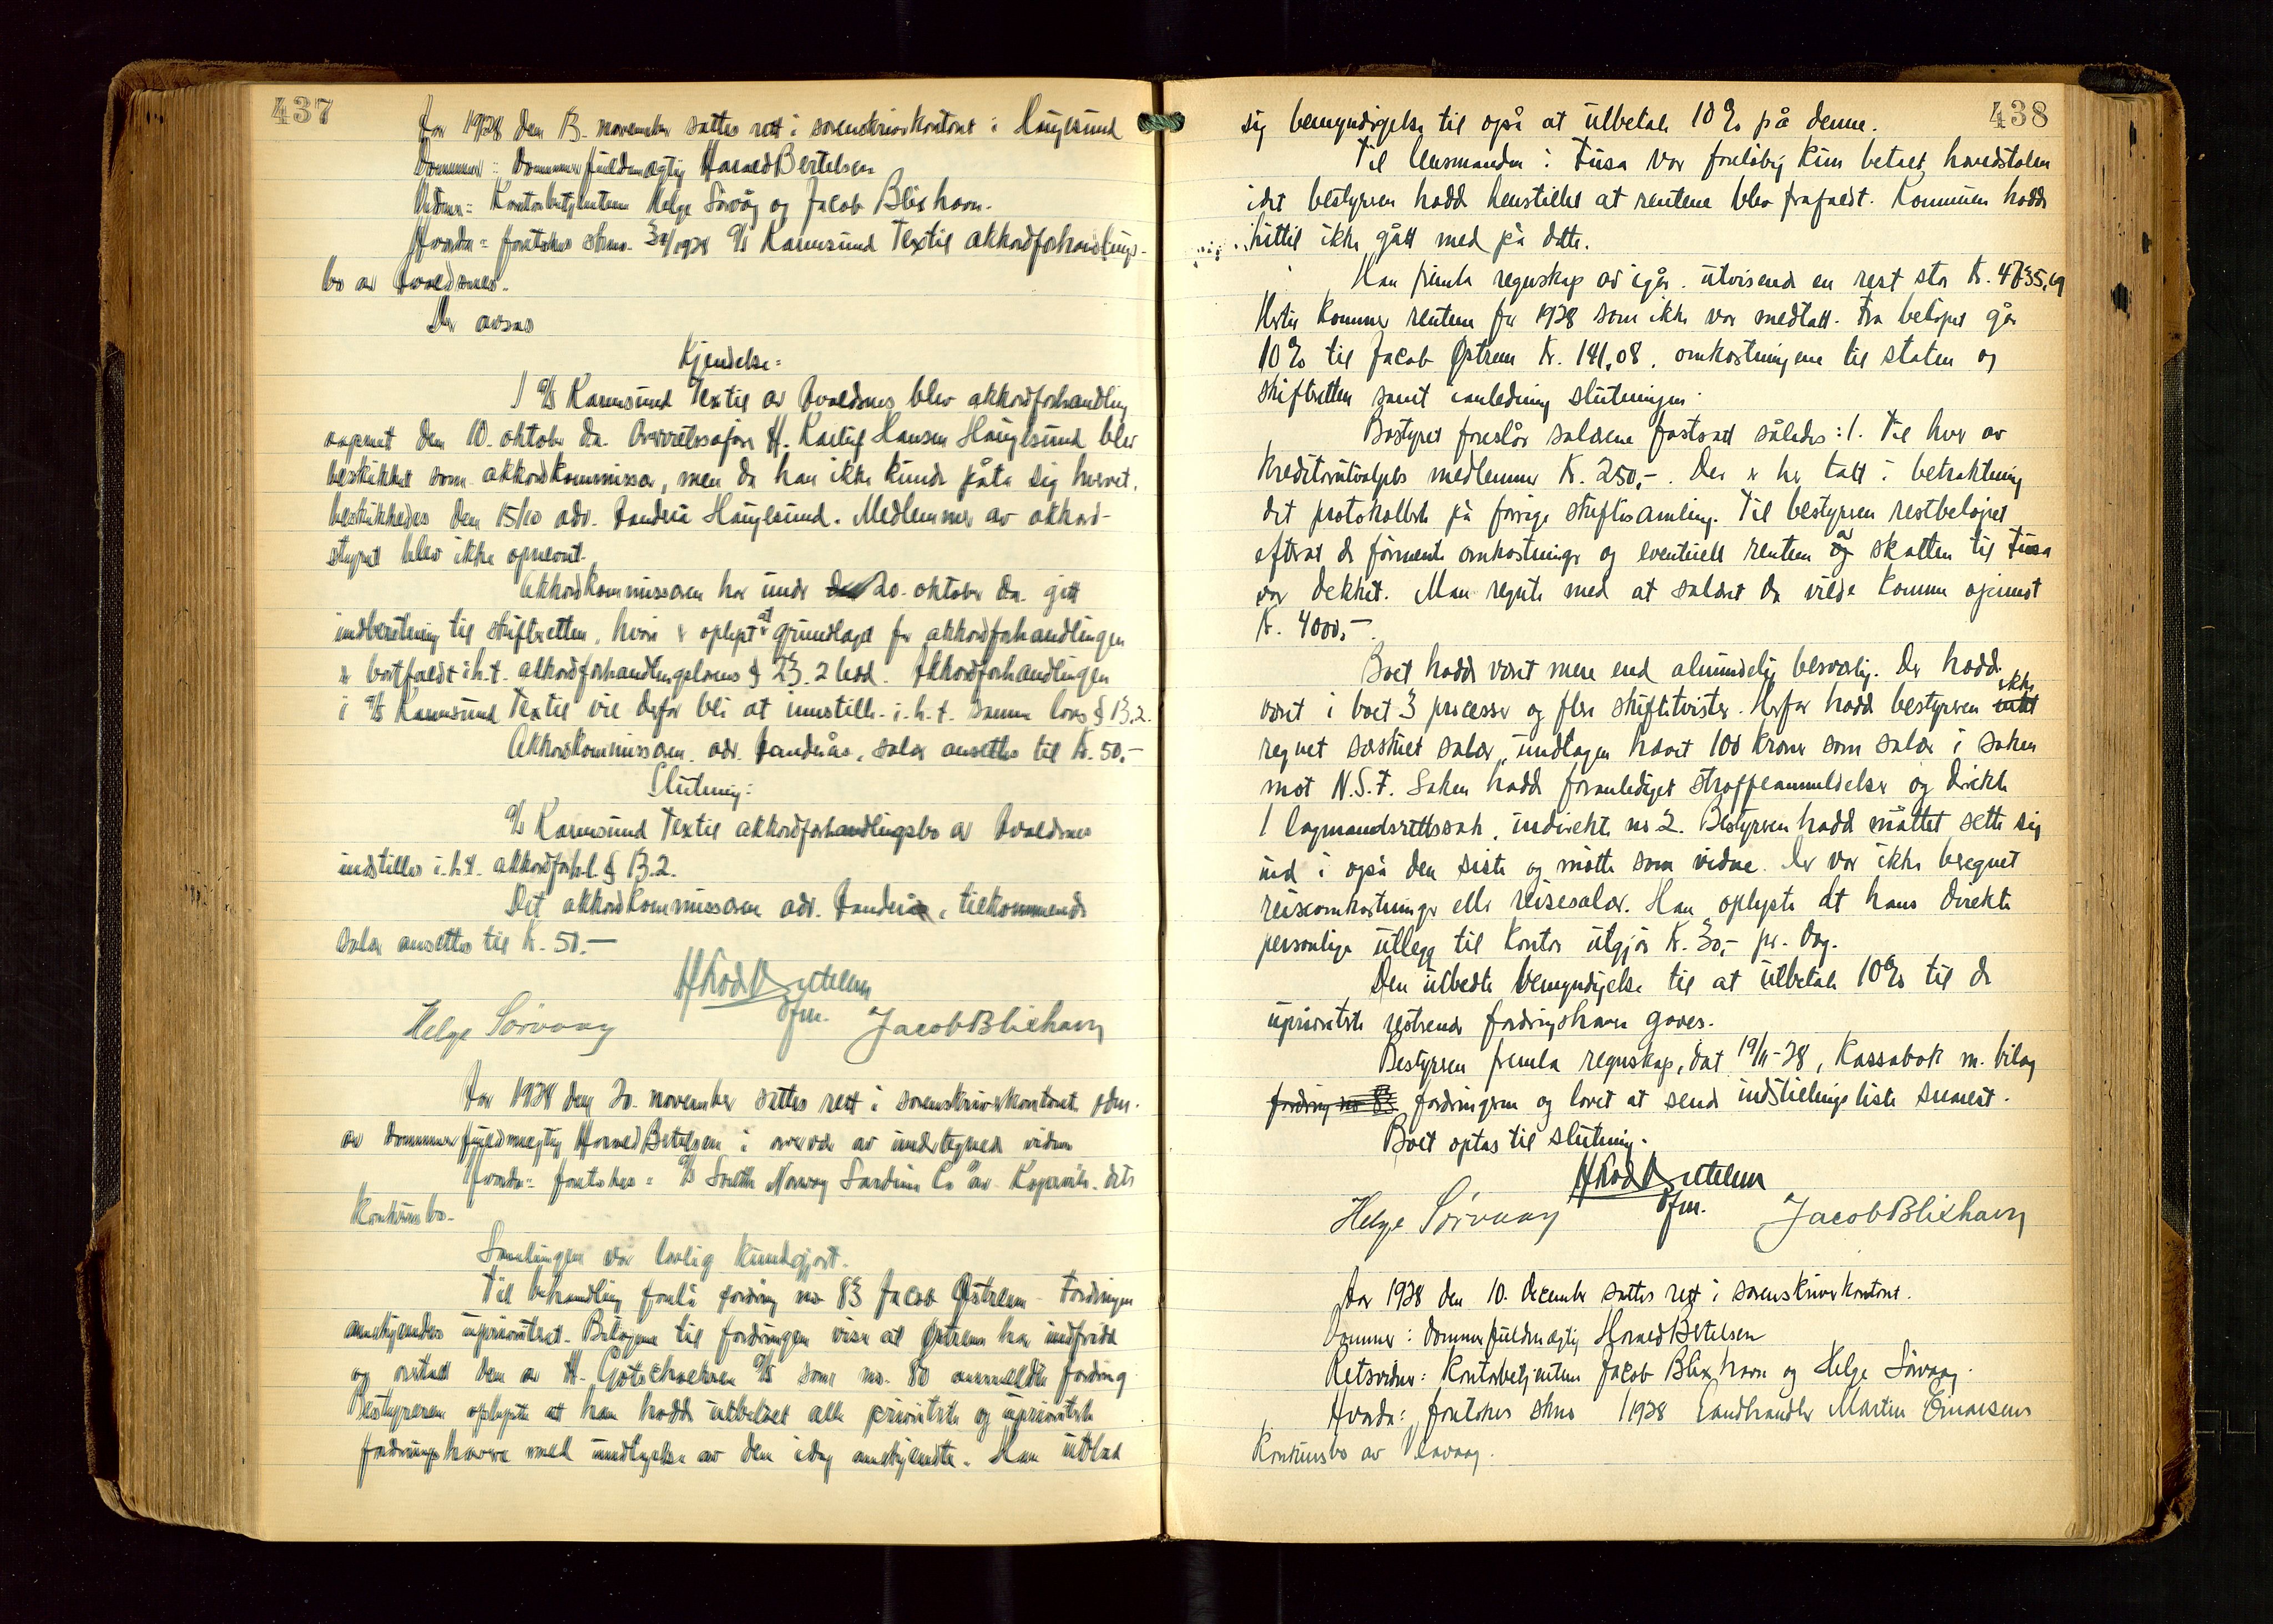 437
Aar 1938 den 13. november sattes rett i sorenskriverkontoret i Haugesund
Dommer: Dommerfuldmægtig Harald Bertelsen
Vidner: Kontorbetjentene Helge Sørvåg og Jacob Blixhavn.
Hvorda: foretokes skno. /1938 A/S Karmsund Textil akkordforhandlings-
bo av Avaldsnes.
Der avsas
Kjendelse:
I A/S Karmsund Textil av Avaldsnes blev akkordforhandling
aapnet den 10. oktober da. Overrettssakfører H. Hansen Haugesund blev
beskikket som akkordkommissær, men da han ikke kunde påta sig hvervet,
beskikkedes den 15/10 adv. Haugesund. Medlemmer av akkord-
styret blev ikke opnevnt.
Akkordkommissæren har under den 20. oktober da. gitt
indberetning til skifteretten, hvori er oplyst at grundlaget for akkordforhandlingen
er bortfaldt i.h.t. akkordforhandlingslovens § 23. 2 ledd. Akkordforhandlingen
i A/S Karmsund Textil vil derfor bli at innstille i.h.t. samme lovs § 13.2.
Akkordkommissæren, adv. salær ansettes til kr. 50.-
Slutning:
A/S Karmsund Textil akkordforhandlingsbo av Avaldsnes
indstilles i.h.t. akkordforh.l. § 13.2.
Det akkordkommissæren adv. tilkommende
salær ansettes til kr. 50.-
Bertelsen
dfm.
Helge Sørvaag Jacob Blixhavn
Aar 1938 den 20. november sattes rett i sorenskriverkontoret adm.
av dommerfuldmægtig Harald Bertelsen i overvær av undertegnede vidner
Hvorda: foretokes: A/S South Norway Sardine Co av Kopervik, dets
konkursbo.
Samlingen var lovlig kundgjort.
Til behandling forelå fordring no 83 Jacob Østrem. Fordringen
anerkjendes uprioritert. Bilagene til fordringen viser at Østrem har indfridd
og overtatt den av H. A/S som no. 80 anmeldte fordring
Bestyreren oplyste at han hadde utbetalt alle prioriterte og uprioriterte
fordringshavere med undtagelse av den idag anerkjendte. Han utbad
438
sig bemyndigelse til også at utbetale 10% på denne.
Til lensmanden i Fusa var foreløbig kun betalt hovedstolen
idet bestyreren hadde henstillet at rentene blev frafaldt. Kommunen hadde
hittil ikke gått med på dette.
Han fremla regnskap av igår. utvisende en rest stor kr. 4735,19
Hertil kommer rentene for 1938 som ikke var medtatt. Fra beløpet går
10% til Jacob Østrem kr. 141,08, omkostningene til staten og
skifteretten samt i anledning slutningen.
Bostyret foreslår salærene fastsatt således: 1. Til hver av
kreditorutvalgets medlemmer kr. 250,-. Der er her tatt i betraktning
det protokollerte på forrige skiftesamling. Til bestyreren restbeløpet
efterat de fornevnte omkostninger og eventuelle renten og av skatten til Fusa
var dekket. Man regnte med at salæret da vilde komme opimot
kr. 4000,-.
Boet hadde vært mere end almindelig besværlig. Der hadde
vært i boet 3 processer og flere skiftetvister. Herfor hadde bestyreren intet ikke
regnet særskilt salær, undtagen hævet 100 kroner som salær i saken
mot N.S.F. Saken hadde foranlediget straffeanmeldelser og direkte
1 lagmandsrettssak, indirekte no 2. Bestyreren hadde måttet sette sig
ind i også den siste og møtte som vidne. Der var ikke beregnet
reiseomkostninger eller reisesalær. Han oplyste at hans direkte
personlige utlegg til kontor utgjør kr. 30,- pr. dag.
Den utbedte bemyndigelse til at utbetale 10% til de
uprioriterte resterende fordringshaver gaves.
Bestyreren fremla regnskap, dat 19/11-38, kassabok m. bilag
fordring no 83 fordringene og lovet at sende indstillingsliste snarest.
Boet optas til slutning.
Bertelsen
dfm.
Helge Sørvaag Jacob Blixhavn
Aar 1938 den 10. december sattes rett i sorenskriverkontoret.
Dommer: dommerfuldmægtig Harald Bertelsen
Retsvidner: Kontorbetjentene Jacob Blixhavn og Helge Sørvaag.
Hvorda: foretokes skno /1938 Landhandler Martin Einarsens
Konkursbo av Veavaag.